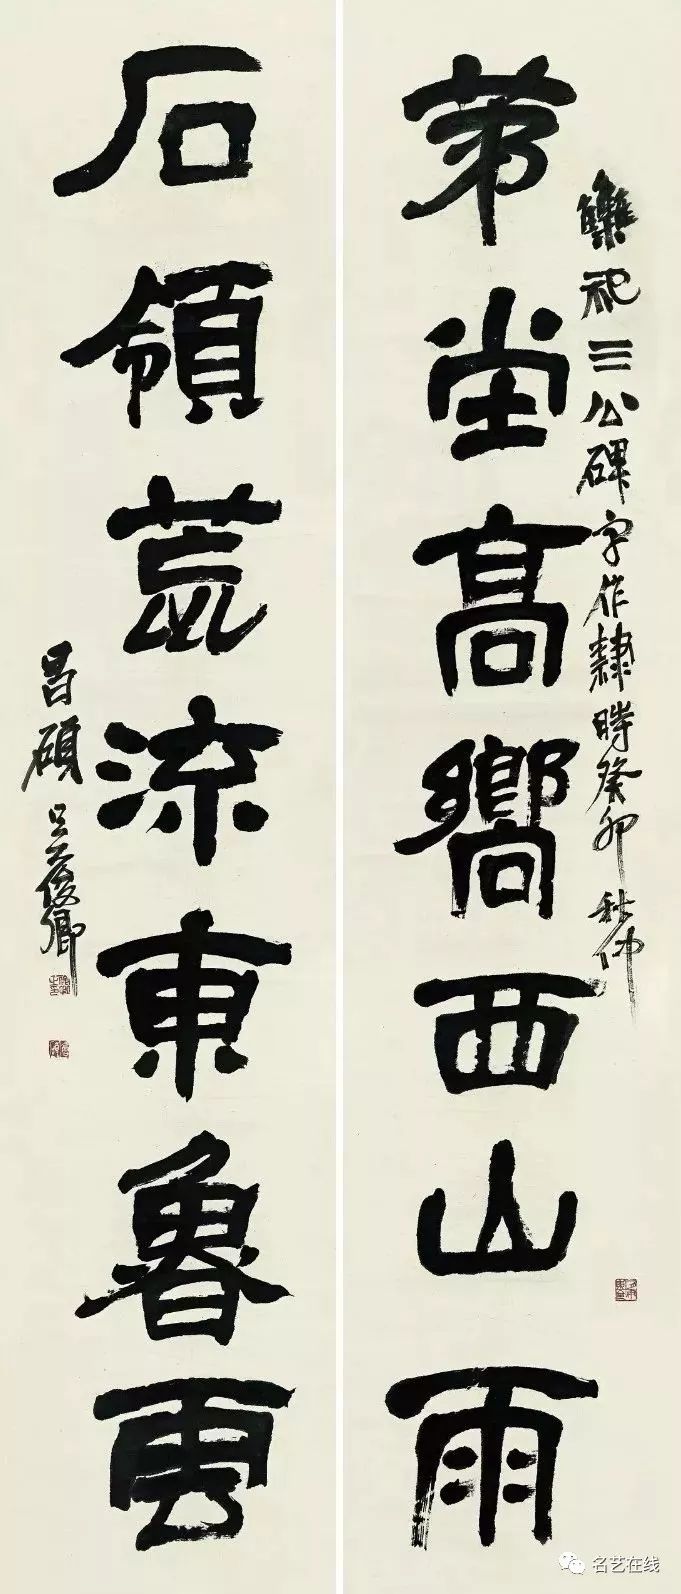 苐堂高嚮西山雨
雧祀三公碑字作隸時癸卯秋仲
石領荒流東魯雲
昌碩吳俊卿
名艺在线